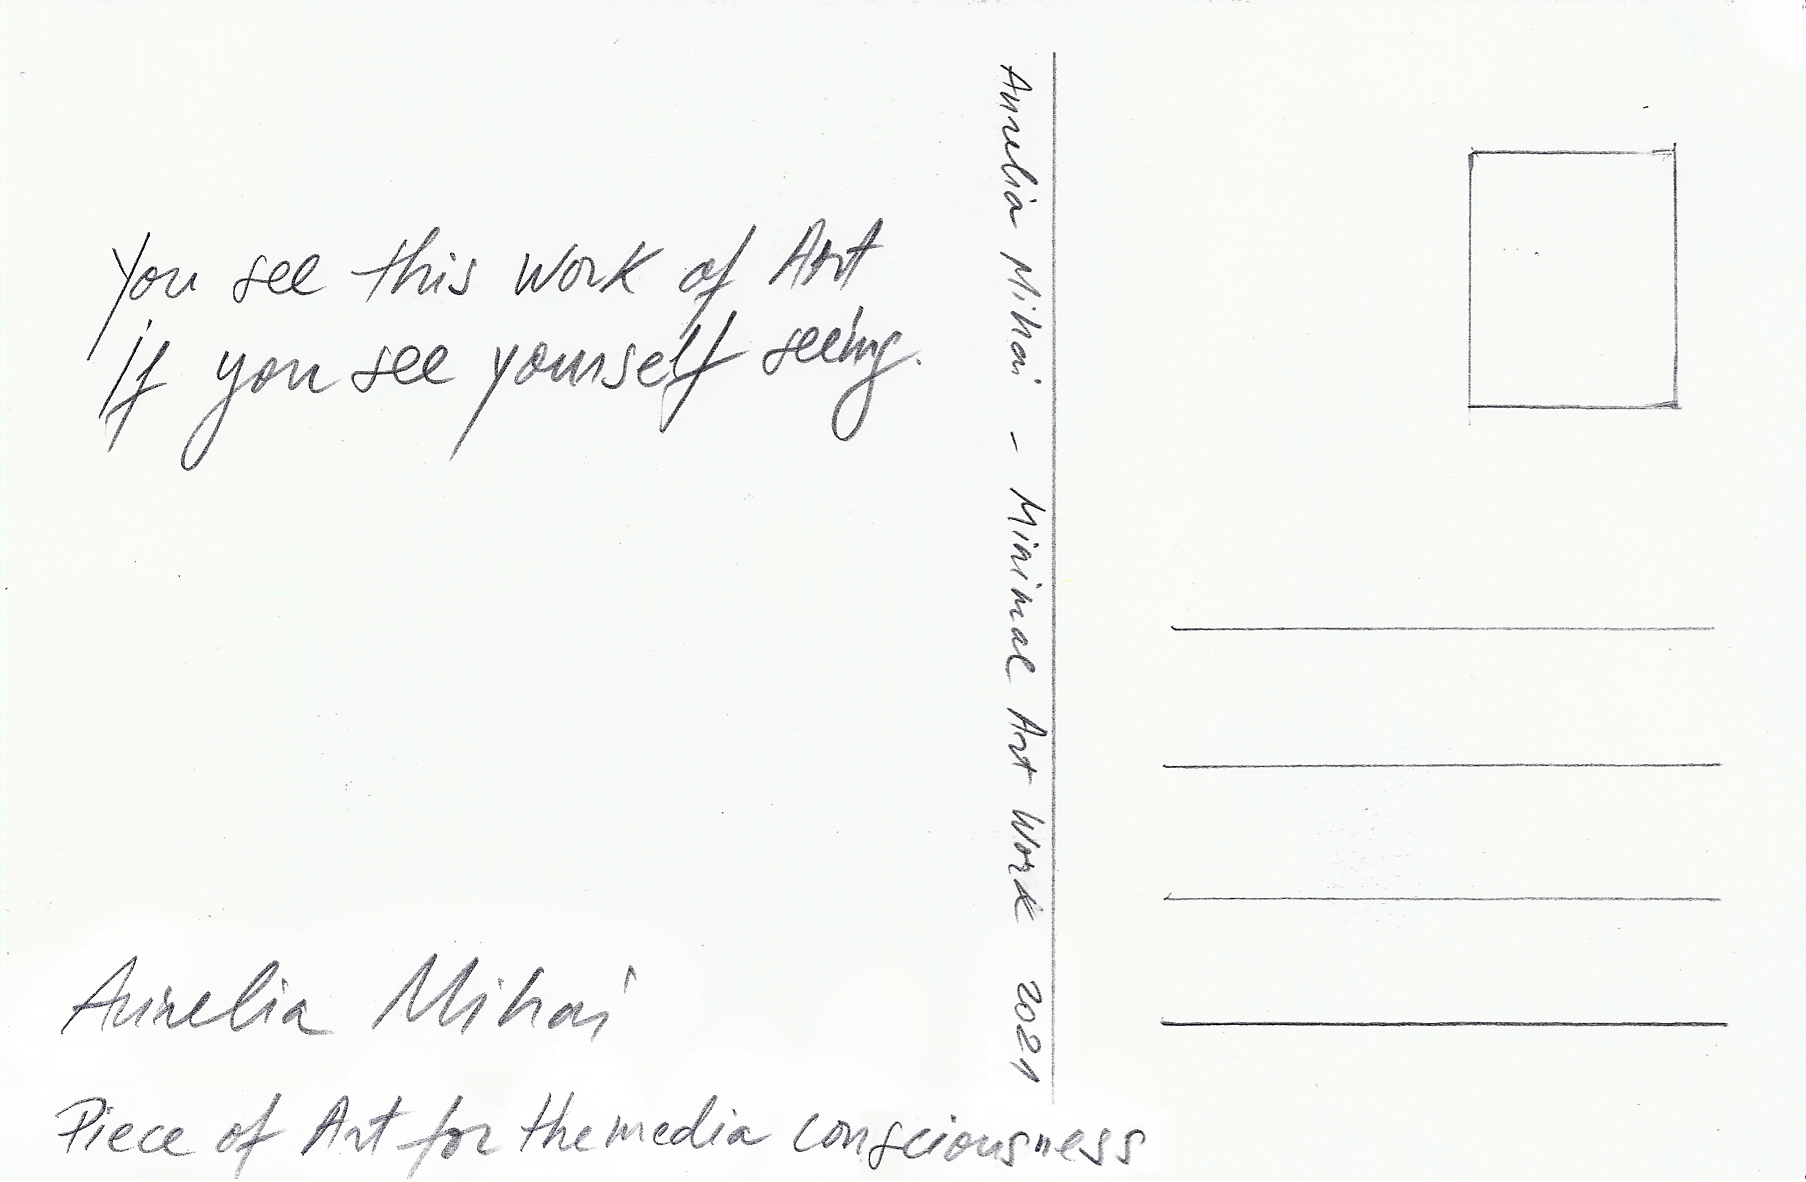 You see this work of Art
If you see yourself seeing.
Aurelia Mihai - Minimal Art Work 2021
Aurelia Mihai
Piece of Art for the media consciousness